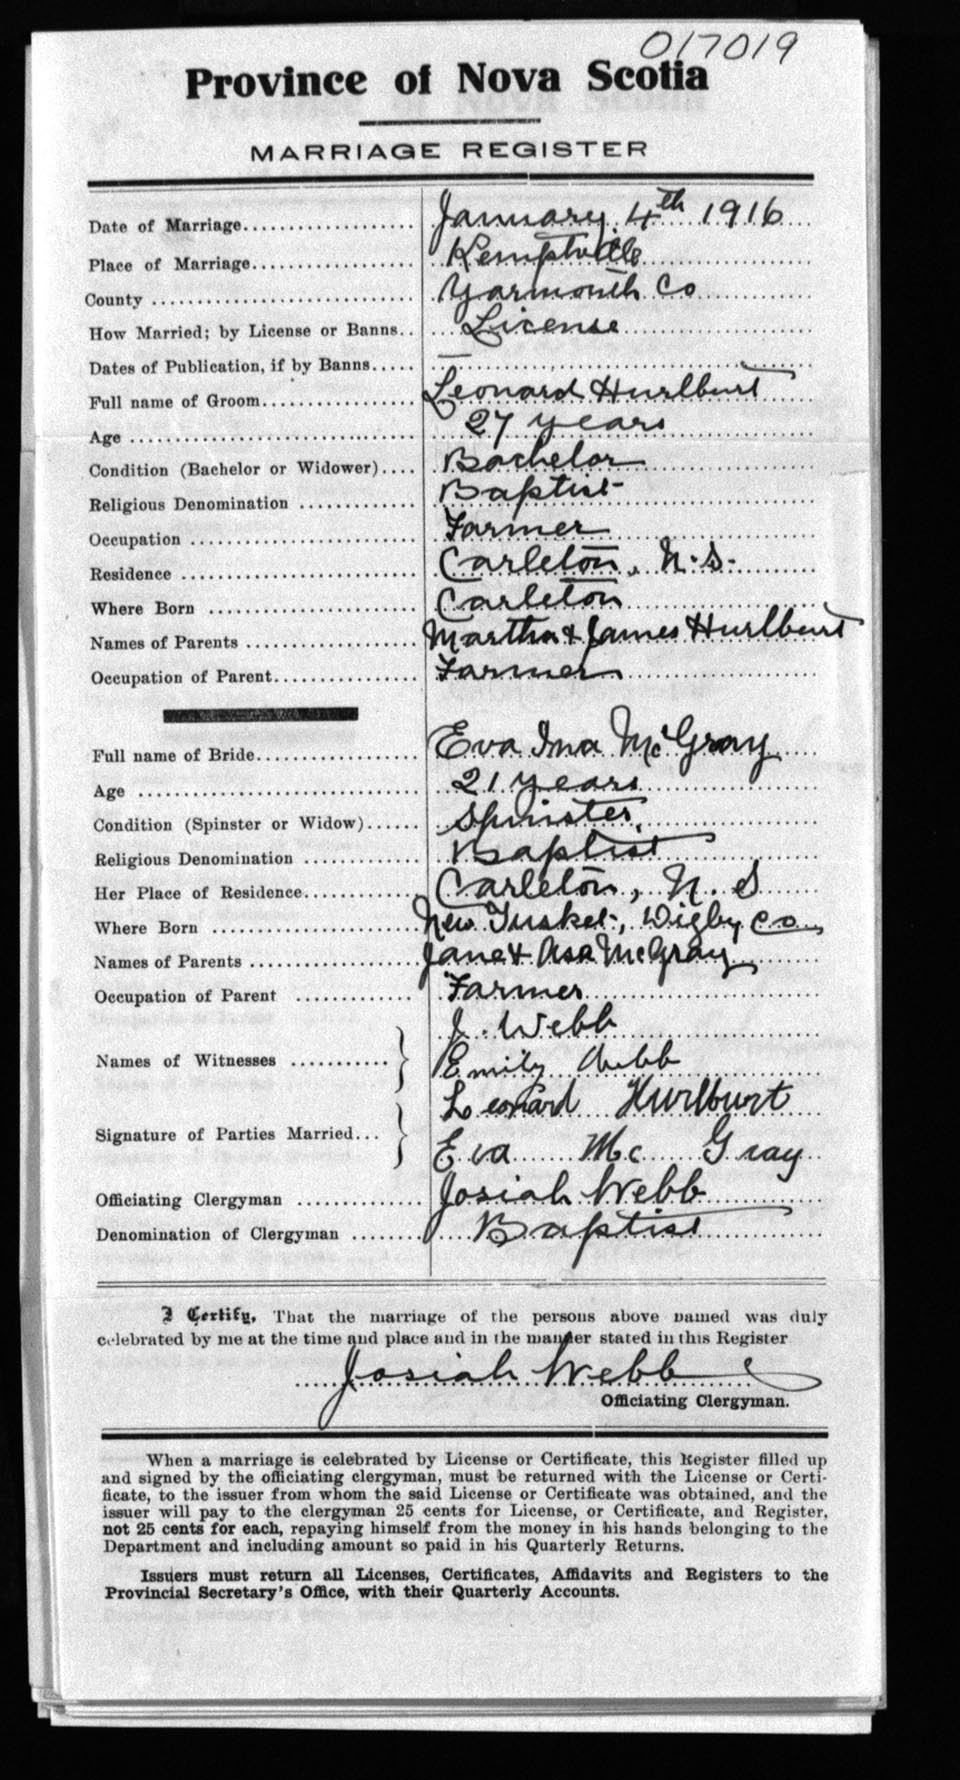 017019
Province of Nova Scotia
MARRIAGE REGISTER
Date of Marriage January 4th 1916
Place of Marriage Kemptville
County Yarmouth Co
How Married; by License or Banns License
Dates of Publication, if by Banns —
Full name of Groom Leonard Hurlburt
Age 27 years
Condition (Bachelor or Widower) Bachelor
Religious Denomination Baptist
Occupation Farmer
Residence Carleton, N.S.
Where Born Carleton
Names of Parents Martha & James Hurlburt
Occupation of Parent Farmer
Full name of Bride Eva Ina McGray
Age 21 years
Condition (Spinster or Widow) Spinster,
Religious Denomination Baptist
Her Place of Residence Carleton, N. S
Where Born New Tusket, Digby Co
Names of Parents Jane & Asa McGray
Occupation of Parent Farmer
J. Webb
Names of Witnesses
Emily Webb
Leonard Hurlburt
Signature of Parties Married
Eva Mc Gray
Officiating Clergyman Josiah Webb
Denomination of Clergyman Baptist
I Certify, That the marriage of the persons above named was duly
celebrated by me at the time and place and in the manner stated in this Register
Josiah Webb
Officiating Clergyman.
When a marriage is celebrated by License or Certificate, this Register filled up
and signed by the officiating clergyman, must be returned with the License or Certi-
ficate, to the issuer from whom the said License or Certificate was obtained, and the
issuer will pay to the clergyman 25 cents for License, or Certificate, and Register,
not 25 cents for each, repaying himself from the money in his hands belonging to the
Department and including amount so paid in his Quarterly Returns.
Issuers must return all Licenses, Certificates, Affidavits and Registers to the
Provincial Secretary's Office, with their Quarterly Accounts.